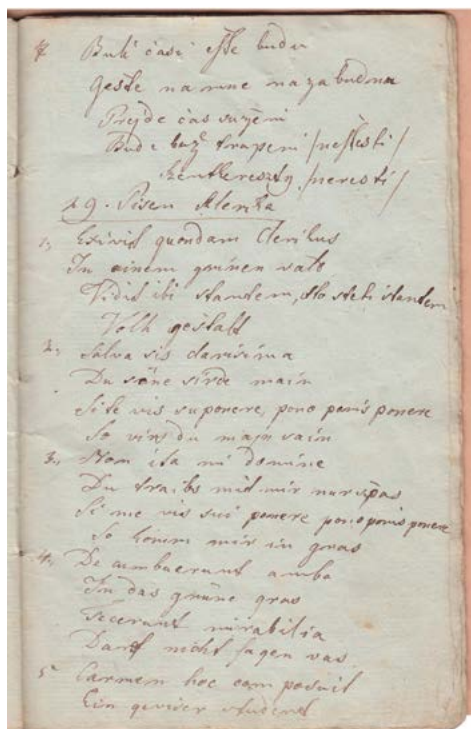 7 Buli časi esste budu
geste na mne na za budnu
Prejde čas suženi
Bude buž trapeni /nesstesti/
/neresti/
29. Pisen Alenka
1, Exivit quondam Clerikus
In einem grünen vald
Vidit ibi stantem, sto steti stantem
Volk gestalt
2, Salva sis clarisima
Du söne sirde main
Si te vis suponere, pono ponis ponere
So virst du majn sain
3, Non ita mi domine
Du traibs mid mir nur spas
Si me vis sui ponere pono ponis ponere
So komm mir in gras
4, De cumbuerunt ambo
In das grüne gras
Fecerunt mirabilia
Darf nicht sagen vas
5 Carmen hoc com posuit
Ein geviser student